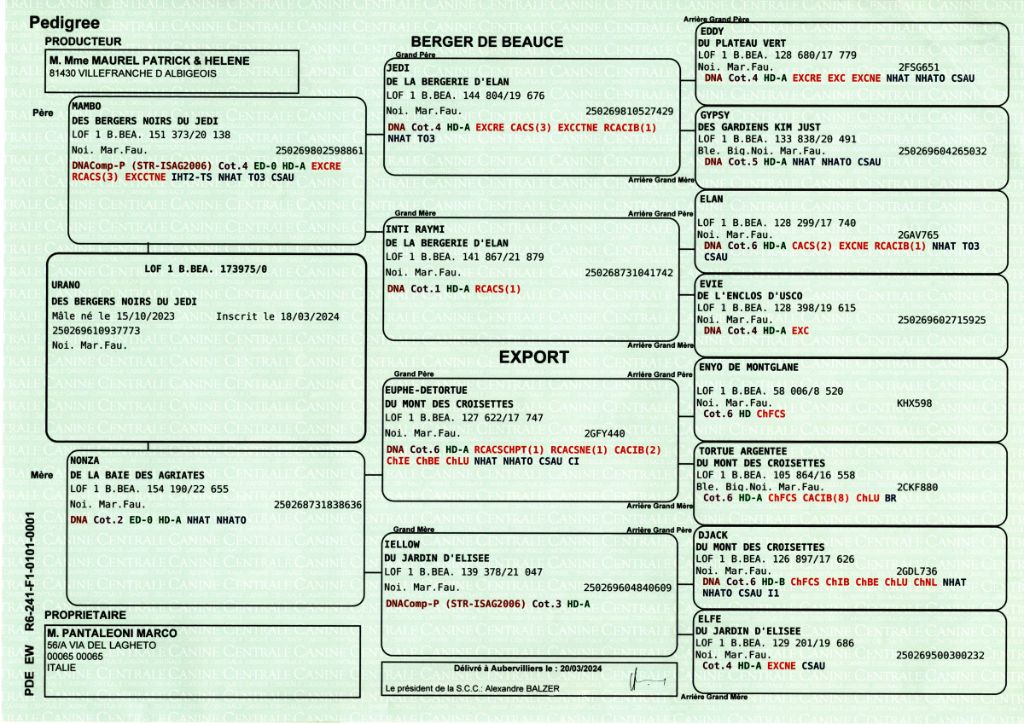 Pedigree
PRODUCTEUR
M. Mme MAUREL PATRICK & HELENE
81430 VILLEFRANCHE D ALBIGEOIS
BERGER DE BEAUCE
Père
MAMBO
DES BERGERS NOIRS DU JEDI
LOF 1 B.BEA. 151 373/20 138
Noi. Mar.Fau. 250269802598861
DNAComp-P (STR-ISAG2006) Cot.4 ED-0 HD-A EXCRE
RCACS(3) EXCCTNE IHT2-TS NHAT TO3 CSAU
LOF 1 B.BEA. 173975/0
URANO
DES BERGERS NOIRS DU JEDI
Mâle né le 15/10/2023 Inscrit le 18/03/2024
250269610937773
Noi. Mar.Fau.
Mère
NONZA
DE LA BAIE DES AGRIATES
LOF 1 B.BEA. 154 190/22 655
Noi. Mar.Fau. 250268731838636
DNA Cot.2 ED-0 HD-A NHAT NHATO
PROPRIETAIRE
M. PANTALEONI MARCO
56/A VIA DEL LAGHETO
00065 00065
ITALIE
PDE EW R6-241-F1-0101-0001
Grand Père
JEDI
DE LA BERGERIE D'ELAN
LOF 1 B.BEA. 144 804/19 676
Noi. Mar.Fau. 250269810527429
DNA Cot.4 HD-A EXCRE CACS(3) EXCCTNE RCACIB(1)
NHAT TO3
Grand Mère
INTI RAYMI
DE LA BERGERIE D'ELAN
LOF 1 B.BEA. 141 867/21 879
Noi. Mar.Fau. 250268731041742
DNA Cot.1 HD-A RCACS(1)
EXPORT
Grand Père
EUPHE-DETORTUE
DU MONT DES CROISETTES
LOF 1 B.BEA. 127 622/17 747
Noi. Mar.Fau. 2GFY440
DNA Cot.6 HD-A RCACSCHPT(1) RCACSNE(1) CACIB(2)
ChIE ChBE ChLU NHAT NHATO CSAU CI
Grand Mère
IELLOW
DU JARDIN D'ELISEE
LOF 1 B.BEA. 139 378/21 047
Noi. Mar.Fau. 250269604840609
DNAComp-P (STR-ISAG2006) Cot.3 HD-A
Délivré à Aubervilliers le : 20/03/2024
Le président de la S.C.C.: Alexandre BALZER
Arrière Grand Père
EDDY
DU PLATEAU VERT
LOF 1 B.BEA. 128 680/17 779
Noi. Mar.Fau. 2FSG651
DNA Cot.4 HD-A EXCRE EXC EXCNE NHAT NHATO CSAU
GYPSY
DES GARDIENS KIM JUST
LOF 1 B.BEA. 133 838/20 491
Ble. Biq.Noi. Mar.Fau. 250269604265032
DNA Cot.5 HD-A NHAT NHATO CSAU
Arrière Grand Mère
Arrière Grand Père
ELAN
LOF 1 B.BEA. 128 299/17 740
Noi. Mar.Fau. 2GAV765
DNA Cot.6 HD-A CACS(2) EXCNE RCACIB(1) NHAT TO3
CSAU
EVIE
DE L'ENCLOS D'USCO
LOF 1 B.BEA. 128 398/19 615
Noi. Mar.Fau. 250269602715925
DNA Cot.4 HD-A EXC
Arrière Grand Mère
Arrière Grand Père
ENYO DE MONTGLANE
LOF 1 B.BEA. 58 006/8 520
Noi. Mar.Fau. KHX598
Cot.6 HD ChFCS
TORTUE ARGENTEE
DU MONT DES CROISETTES
LOF 1 B.BEA. 105 864/16 558
Ble. Biq.Noi. Mar.Fau. 2CKF880
Cot.6 HD-A ChFCS CACIB(8) ChLU BR
Arrière Grand Mère
Arrière Grand Père
DJACK
DU MONT DES CROISETTES
LOF 1 B.BEA. 126 897/17 626
Noi. Mar.Fau. 2GDL736
DNA Cot.6 HD-B ChFCS ChIB ChBE ChLU ChNL NHAT
NHATO CSAU I1
ELFE
DU JARDIN D'ELISEE
LOF 1 B.BEA. 129 201/19 686
Noi. Mar.Fau. 250269500300232
Cot.4 HD-A EXCNE CSAU
Arrière Grand Mère